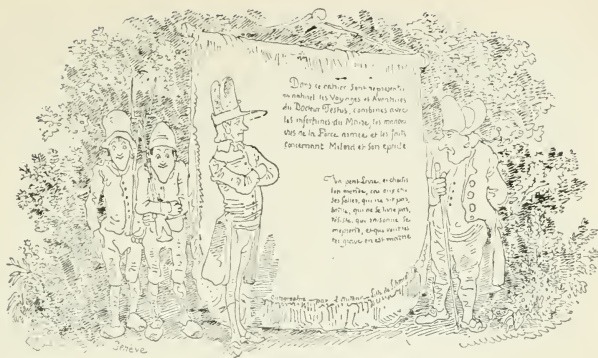 Dans ce cahier sont représentés
au naturel les Voyages et Aventures
du Docteur Festus, combinées avec
les infortunes du Maire, les manœu-
vres de la Force armée, et les faits
concernant Milord et son épouse
Va petit livre, et choisis
ton monde, car aux cho-
ses folles, qui ne rit pas,
baille, qui ne se livre pas,
résiste, qui raisonne se
méprend, et qui veut res-
ter grave en est maître
Autographié par l'Auteur
Genève